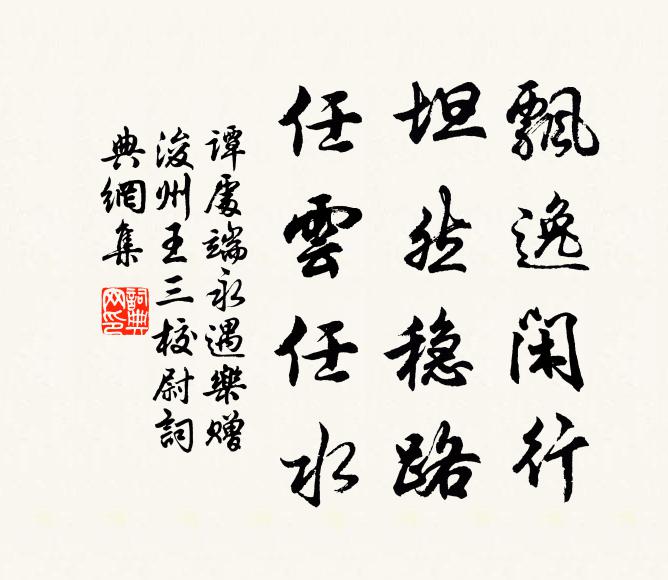 飄逸閑行
坦然穩路
任雲任水
譚處端永遇樂贈
浚州王三校尉詞
典網集
詞典
网印